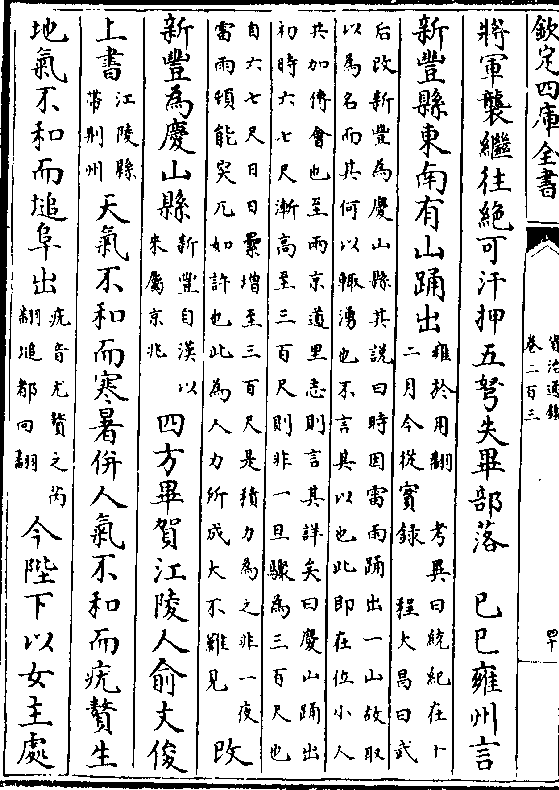 欽定四庫全書
資治通鑑
卷二百三
四十
將軍襲繼往絶可汗押五弩失畢部落　己巳雍州言
新豐縣東南有山踊出
雍於用翻　考異曰統紀在十
二月今從實錄　程大昌曰武
后改新豐為慶山縣其説曰時因雷雨踊出一山故取
以為名而其何以輒湧也不言其以也此即在位小人
共加傅會也至兩京道里志則言其詳矣曰慶山踊出
初時六七尺漸高至三百尺則非一旦驟為三百尺也
自六七尺日日累增至三百尺是積力為之非一夜
雷雨頓能突兀如許也此為人力所成大不難見
改
新豐為慶山縣
新豐自漢以
來屬京兆
四方畢賀江陵人俞文俊
上書
江陵縣
帶荆州
天氣不和而寒暑併人氣不和而疣贅生
地氣不和而塠阜出
疣音尤贅之芮
翻塠都回翻
今陛下以女主處